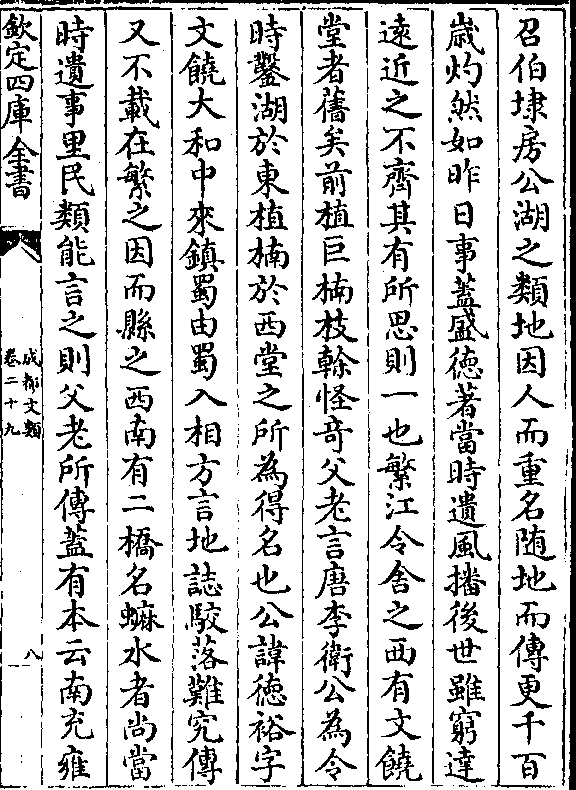 召伯埭房公湖之類地因人而重名随地而傳更千百
歲灼然如昨日事蓋盛徳著當時遺風播後世雖窮達
逺近之不齊其有所思則一也繁江令舍之西有文饒
堂者舊矣前植巨楠枝榦怪奇父老言唐李衛公為令
時鑿湖於東植楠於西堂之所為得名也公諱徳裕字
文饒大和中來鎮蜀由蜀入相方言地誌駮落難究傳
又不載在繁之因而縣之西南有二橋名蠊水者尚當
時遺事里民類能言之則父老所傳蓋有本云南充雍
欽定四庫全書
成都文類
卷二十九
八